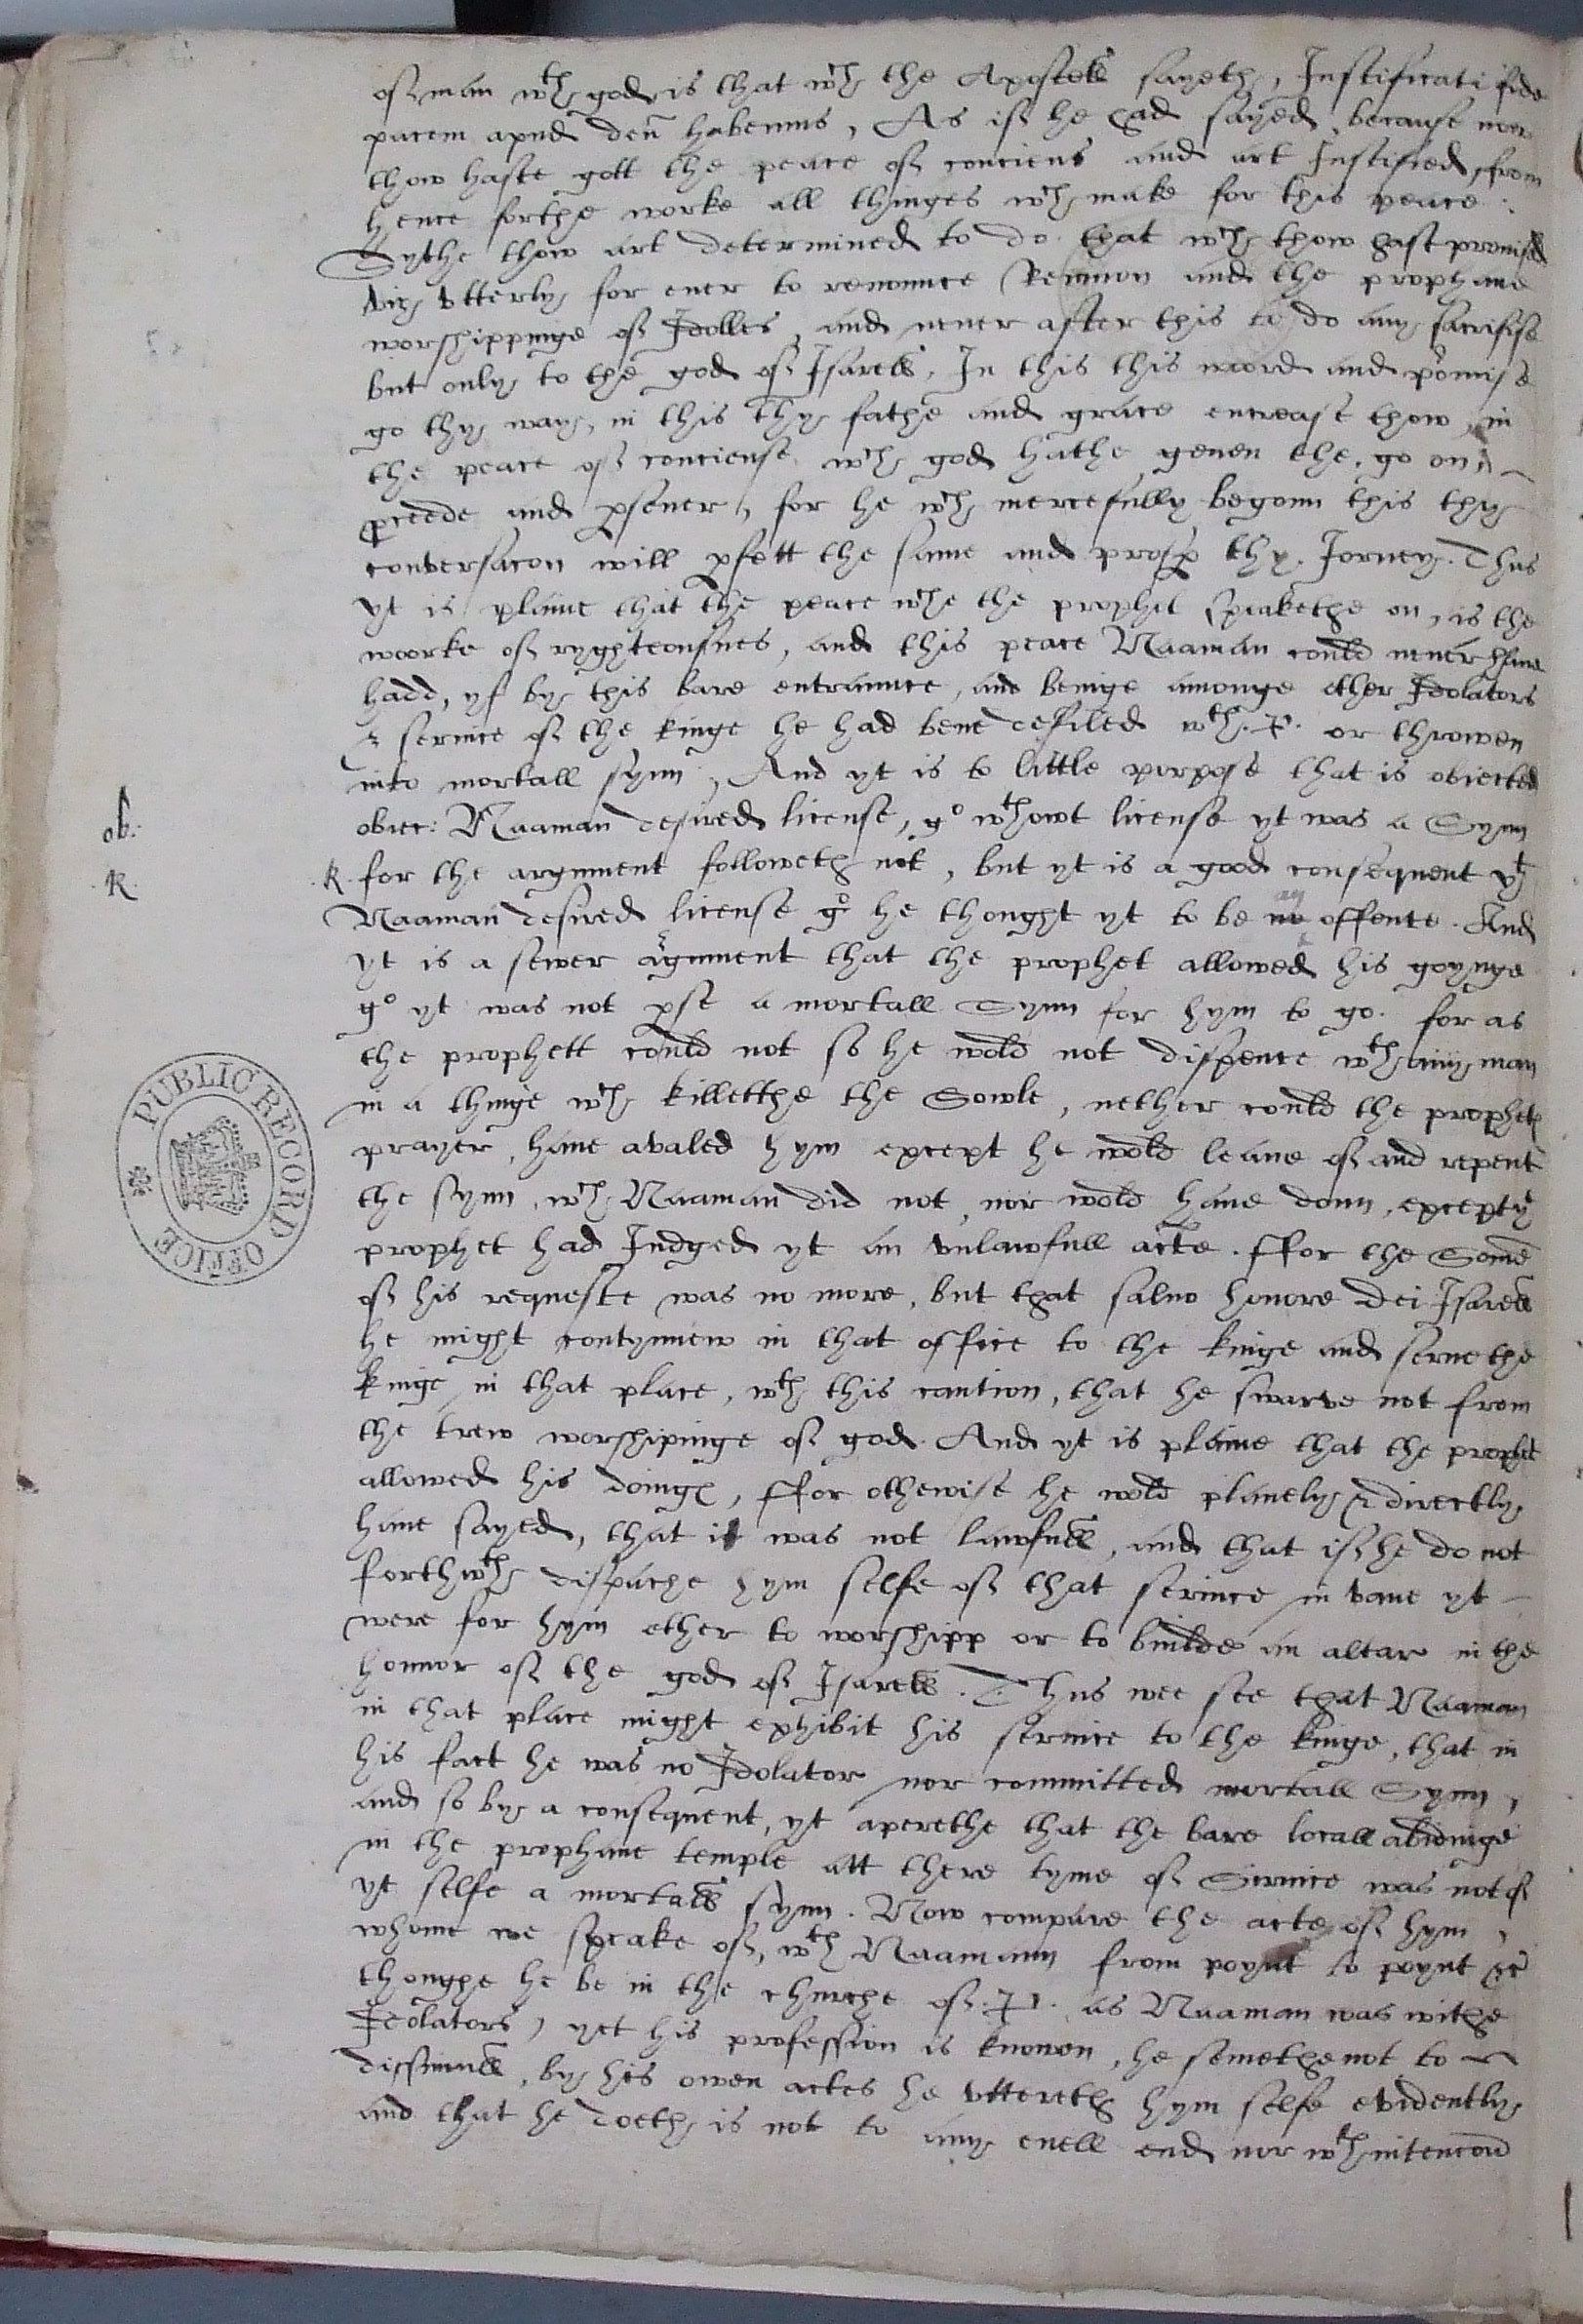 of man wth god is that wch the Apostell sayeth, Iustificati fide
pacem apud deū habemus, As if he had sayed because now
thow haste gott the peace of conciens and art Iustified, from
hence forthe worke all thinges wch make for this peace.
Sythe thow art determined to do that wch thow hast promised
viz vtterly for euer to renounce Remmon and the prophane
worshippinge of Idolles, and neuer after this to do any sacrifise
but only to the god of Israell, In this this woord and promise
go thy way, in this thy fathe and grace encrease thow, in
the peace of conciense wch god hathe geuen the, go on,
procede and pseuer, for he wch mercefully begonn this thy
conversacon will pfett the same and prosp thy Iorney. Thus
yt is plaine that the peace wche the prophet speakethe on, is the
woorke of ryghteousnes, and this peace Naaman could neuer haue
hadd, yf by this bare entraunce, and beinge amonge other Idolators
& seruice of the kinge he had bene defiled wth .P. or throwen
into mortall synn, And yt is to little purpose that is obiected
ob:
obiec: Naaman desired license, go wthowt license yt was a Synn
R.
.R. for the argument followeth not, but yt is a good consequent yt
Naaman desired license go he thought yt to be no an offence. And
yt is a sewer argument that the prophet allowed his goynge
go yt was not pse a mortall Synn for hym to go. for as
the prophett could not so he wold not dispence wth any man
in a thinge wch killetthe the Sowle, nether could the prophetes
prayer, haue avaled hym except he wold leaue of and repent
the synn, wch Naaman did not, nor wold haue donn, except ye
prophet had Iudged yt an vnlawfull acte. ffor the Some
of his requeste was no more, but that saluo honore Dei Israell
he might contynnew in that office to the kinge and serue the
kinge in that place, wth this caution, that he swarve not from
the trew worshipinge of god. And yt is plaine that the prophet
allowed his doinges, ffor othewise he wold planely & directly
haue sayed, that it was not lawfull, and that if he do not
forthwth dispatche hym selfe of that seruice in vane yt
were for hym ether to worshipp or to builde an altar in the
honnor of the god of Israell. Thus wee see that Naaman
in that place might exhibit his seruice to the kinge, that in
his fact he was no Idolator nor committed mortall Synn,
and so by a consequent, yt aperethe that the bare locall abidinge
in the prophane temple att there tyme of Seruice was not of
yt selfe a mortall synn. Now compare the acte of hym,
whome we speake of, wth Naamann from poynt to poynt &c
thoughe he be in the churche of .P. as Naaman was withe
Idolators, yet his profession is knowen, he semethe not to
dissimull, by his owen actes he vttereth hym selfe evidently
and that he doeth is not to any euell end nor wth intencon
PUBLIC RECORD OFFICE